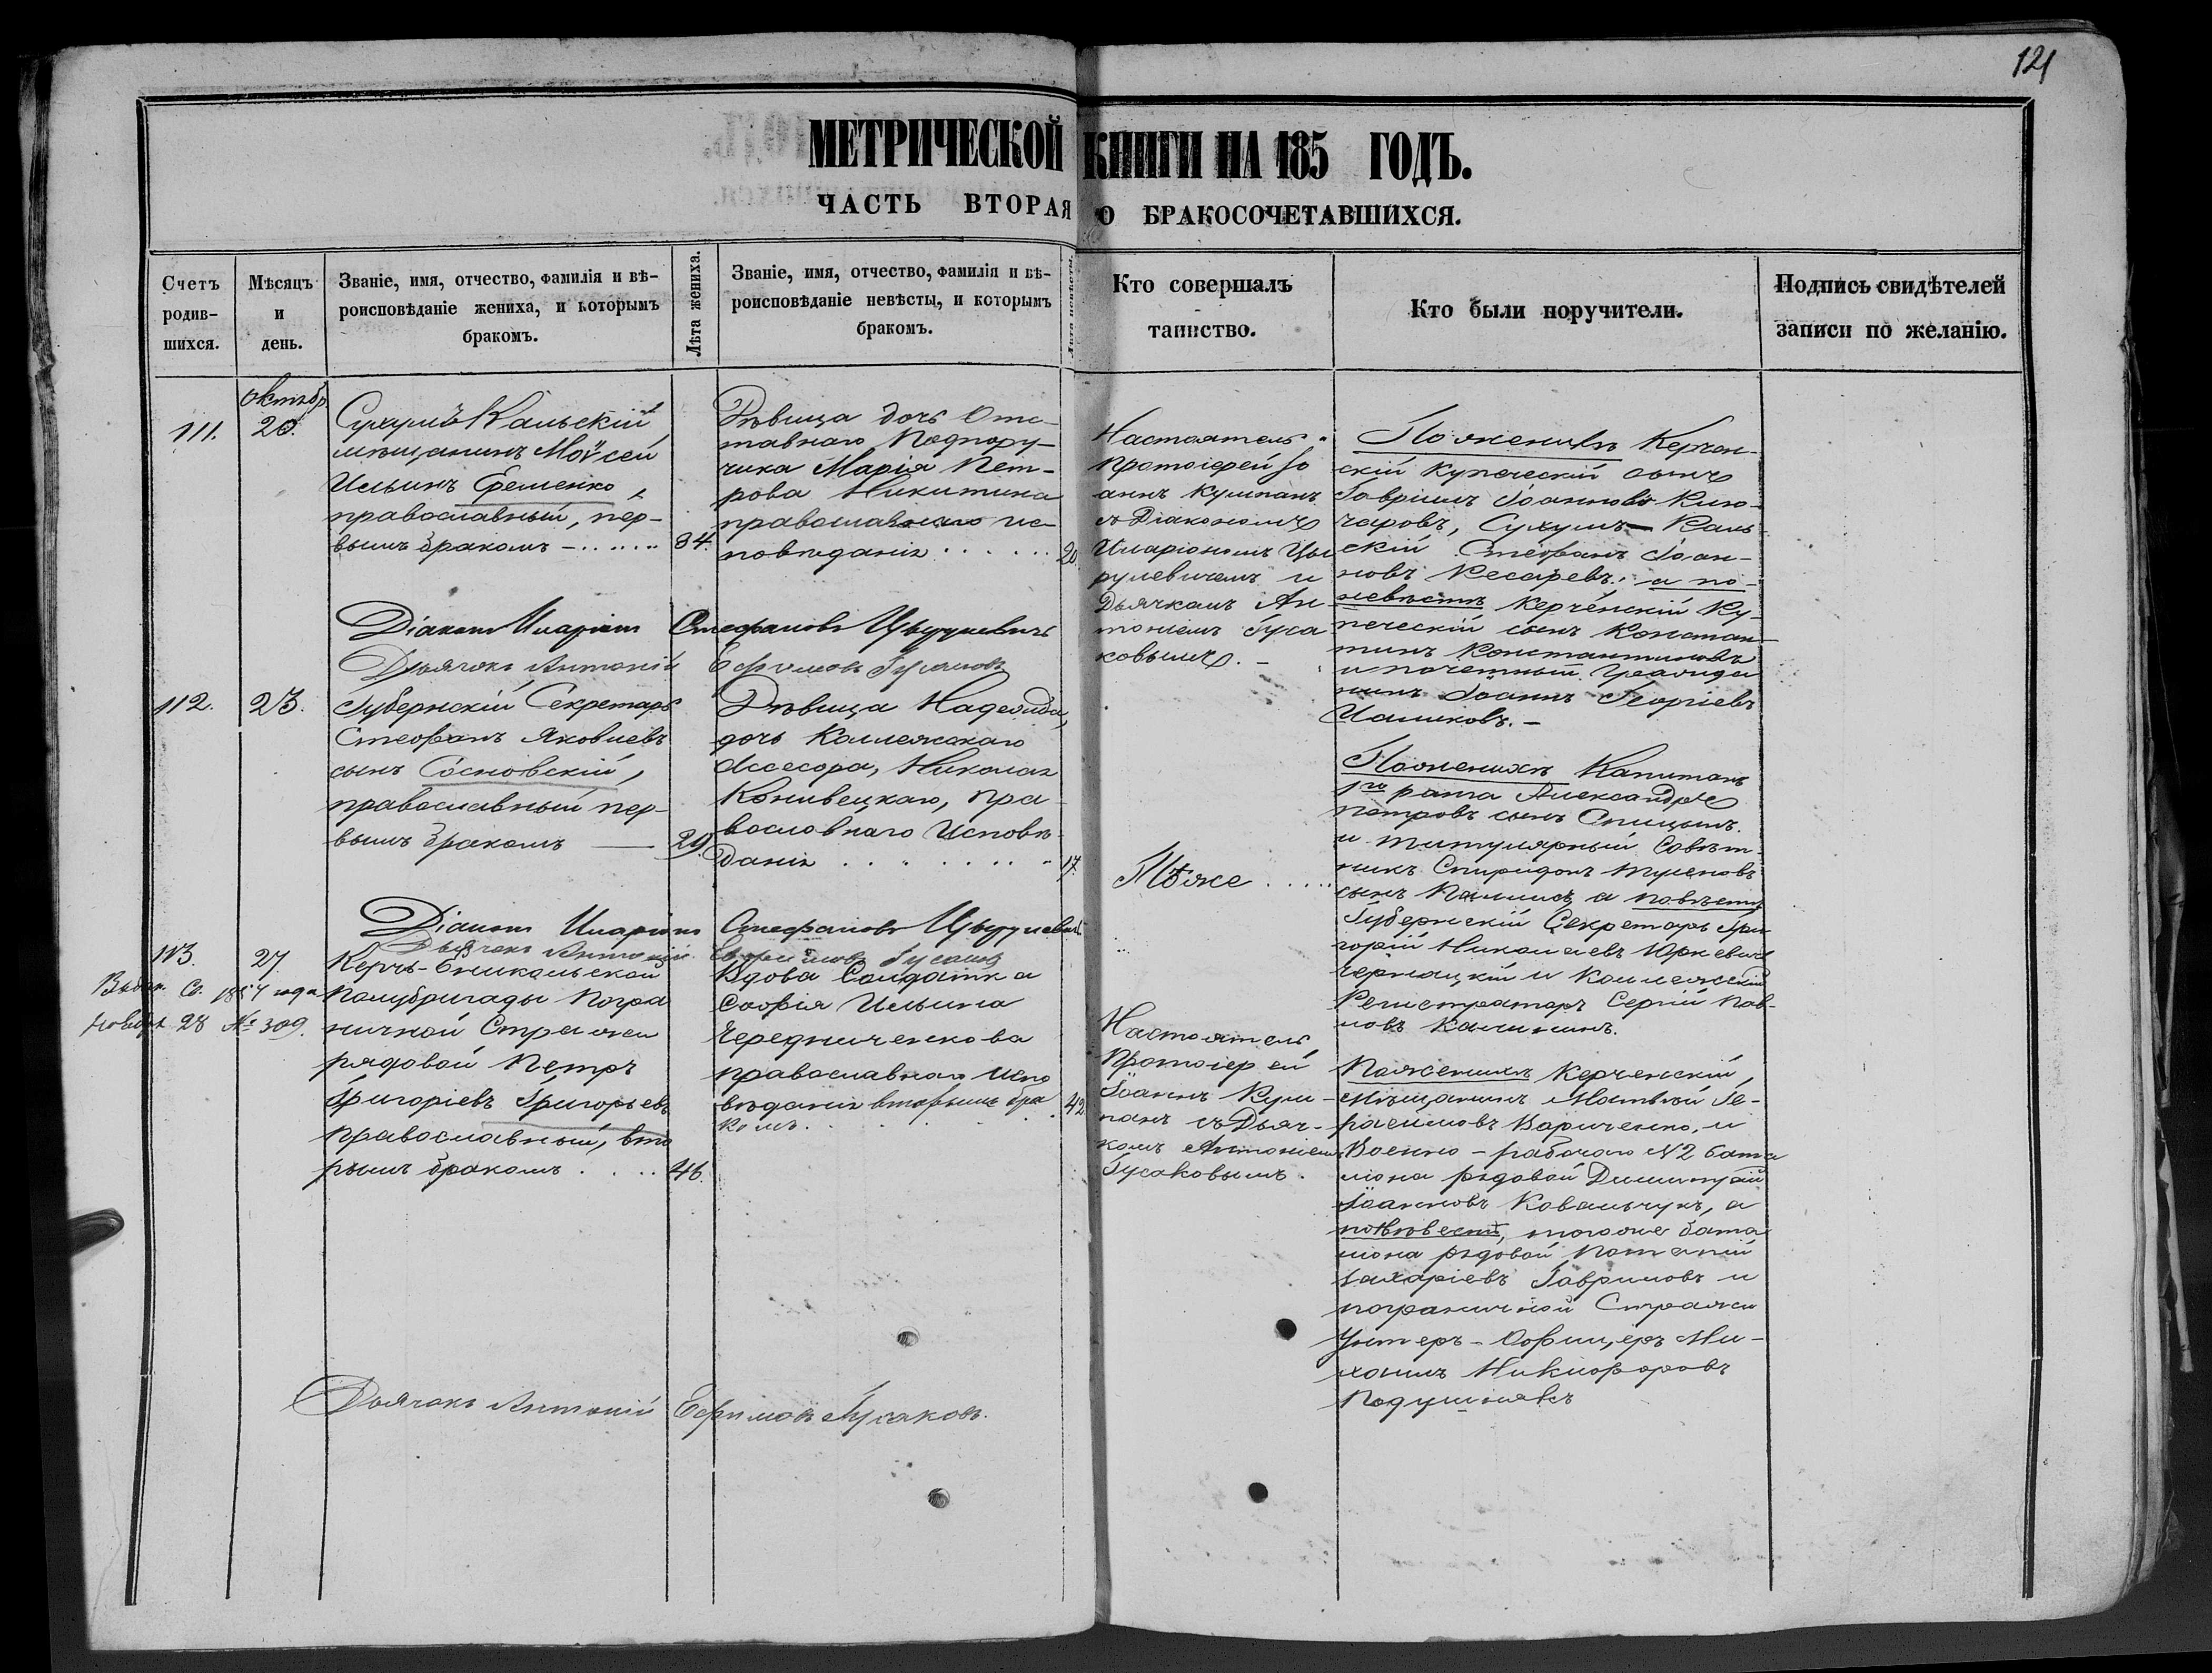 121
МЕТРИЧЕСКОЙ КНИГИ НА 185 ГОДЪ.
ЧАСТЬ ВТОРАЯ О БРАКОСОЧЕТАВШИХСЯ.
Счетъ
родив-
шихся.
Мѣсяцъ
и
день.
Званіе, имя, отчество, фамилія и вѣ-
роисповѣданіе жениха, и которымъ
бракомъ.
Лѣта жениха.
Званіе, имя, отчество, фамилія и вѣ-
роисповѣданіе невѣсты, и которымъ
бракомъ.
Лѣта невѣсты.
Кто совершалъ
таинство.
Кто были поручители.
Подпись свидѣтелей
записи по желанію.
111.
Октябр
20.
Сухумъ Кальскій
мѣщанинъ Моѵсей
Ильинъ Еременко,
православный, пер-
вымъ бракомъ
34.
Дѣвица дочь Отс-
тавнаго Подпору-
чика Марія Пет-
рова Никитина
православнаго ис-
повѣданія
20.
Настоятель
Протоіерей Іо
аннъ Кумпанъ
съ Діакономъ
Иларіономъ Цы
рулевичемъ и
Дьячкомъ Ан
тоніемъ Гуса
ковымъ.
По женихѣ Керчен-
скій Купеческій сынъ
Гавріилъ Іоанновъ Клю-
чаровъ, Сухумъ-Каль
скій Стефанъ Іоан-
новъ Кесаревъ; а по-
невѣстѣ Керченскій Ку-
печескій сынъ Констан-
тинъ Константиновъ
и почетный Гражда
нинъ Іоаннъ Георгіевъ
Діаконъ Иларіонъ Стефановъ Цырулевичъ
Дьячокъ Антоній Ефимовъ Гусаковъ
112.
23.
Губернскій Секретарь
Стефанъ Яковлевъ
сынъ Сосновскій,
православный пер-
вымъ бракомъ
29
Дѣвица Надежда,
дочь Коллежскаго
Ассесора, Николая
Конивецкаго, пра
вославнаго Исповѣ
данія
17.
Тѣже
По женихѣ Капитанъ
1го ранга Александръ
Петровъ сынъ Спицынъ.
и Титулярный Совѣт-
никъ Спиридонъ
сынъ а по невѣстѣ
Губернскій Секретарь Гри-
горій Николаевъ Юркевичъ
и Коллежскій
Регистраторъ Сергій Пав-
ловъ Калининъ.
Діаконъ Иларіонъ Стефановъ Цырулевичъ
Дьячокъ Антоній Ефимовъ Гусаковъ
113.
27.
Выдан. Св. 1857 года
Ноября 28 № 309.
Керчь-Еникольской
Полубригады Погра
ничной Стражи
рядовой Петръ
Григоріевъ Григорьевъ
православный, вто
рымъ бракомъ
46.
Вдова Солдатка
Софія Ильина
Чередниченкова
православнаго Испо
вѣданія вторымъ бра
комъ
42
Настоятель
Протоіерей
Іоаннъ Кум-
панъ съ Дьяч-
комъ Антоніемъ
Гусаковымъ.
По женихѣ Керченскій
мѣщанинъ Матвѣй Ге-
расимовъ Вариченко, и
Военно-рабочаго №2 бата
ліона рядовой Димитрій
Іоанновъ Ковальчукъ, а
по невѣстѣ, тогоже бата
ліона рядовой
Захаріевъ Гавриловъ и
пограничной Стражи
Унтеръ-Офицеръ Ми-
хаилъ Никифоровъ
Дьячокъ Антоній Ефимовъ Гусаковъ.